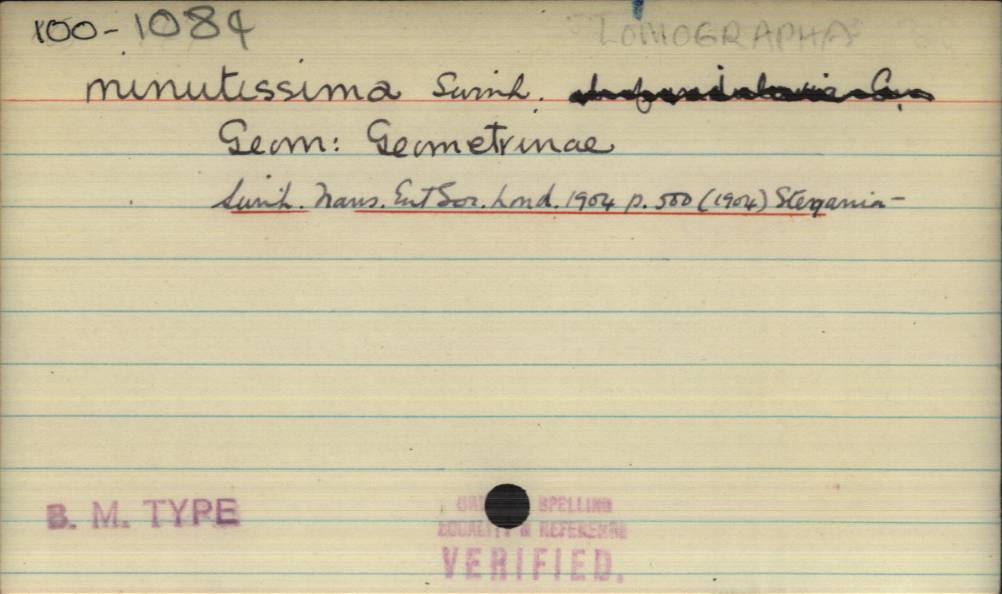 100-1084 LOMOGRAPHA
minutissima Swinh.
Geom: Geometrinae
Swinh. Trans. Ent Soc. Lond. 1904 p. 500 (1904) Stegania-
B. M. TYPE
SPELLING
LOCALITY & REFERENCE
VERIFIED.